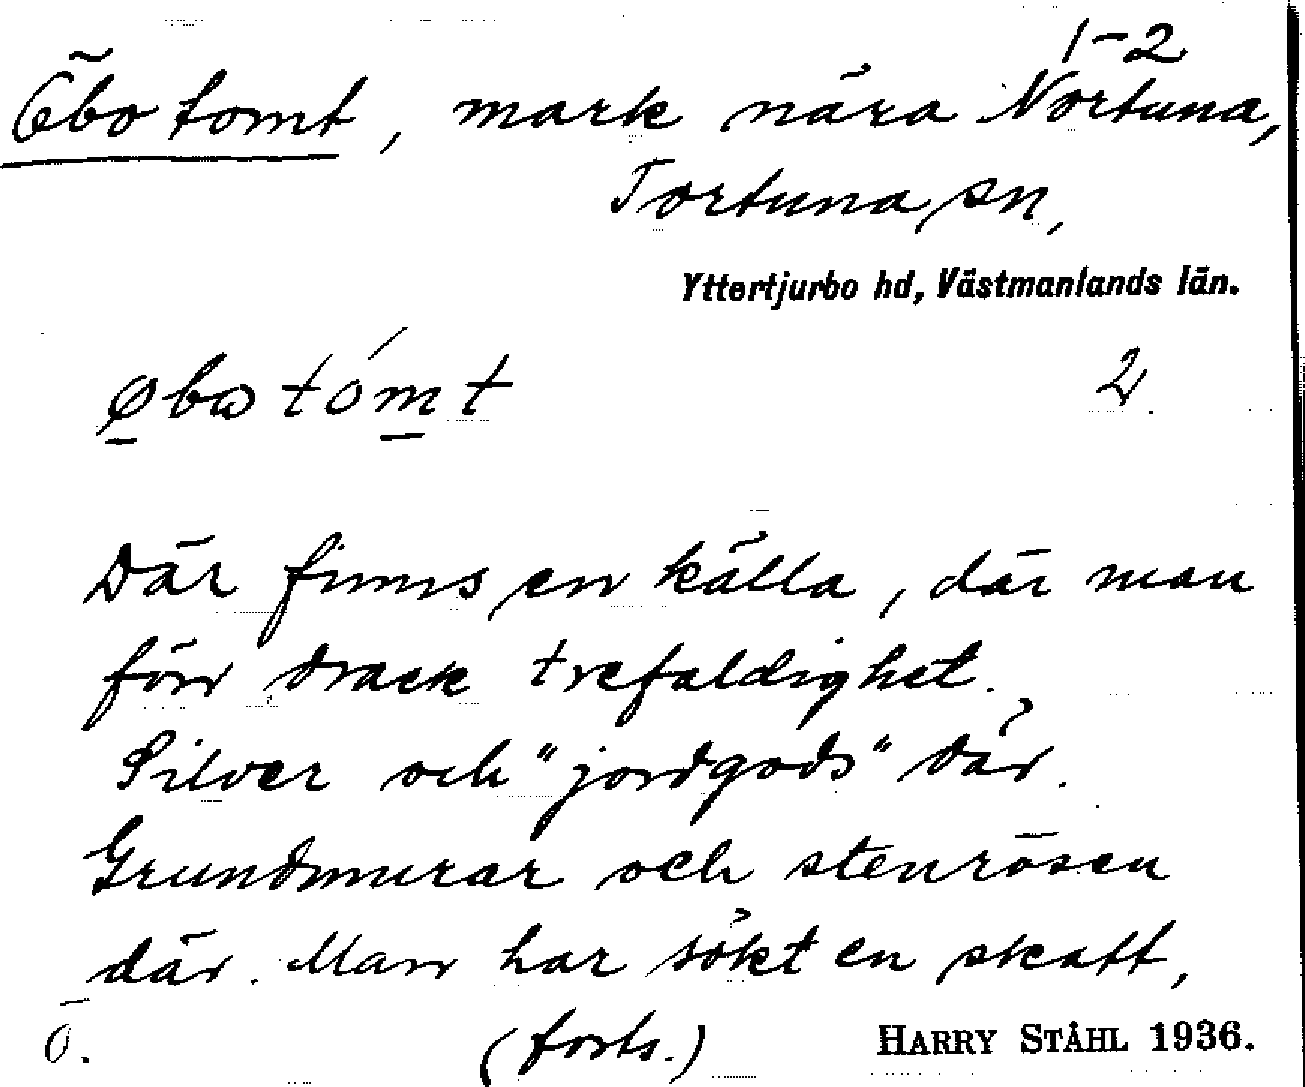 1-2
Öbo tomt, mark nära Nortuna,
Tortuna sn,
Yttertjurbo hd, Västmanlands län.
øbω tómt 2
Där finns en källa, där man
förr drack trefaldighet.
Silver och "jordgods" där.
Grundmurar och stenrösen
där. Man har sökt en skatt,
ö. (forts.) HARRY STÅHL 1936.